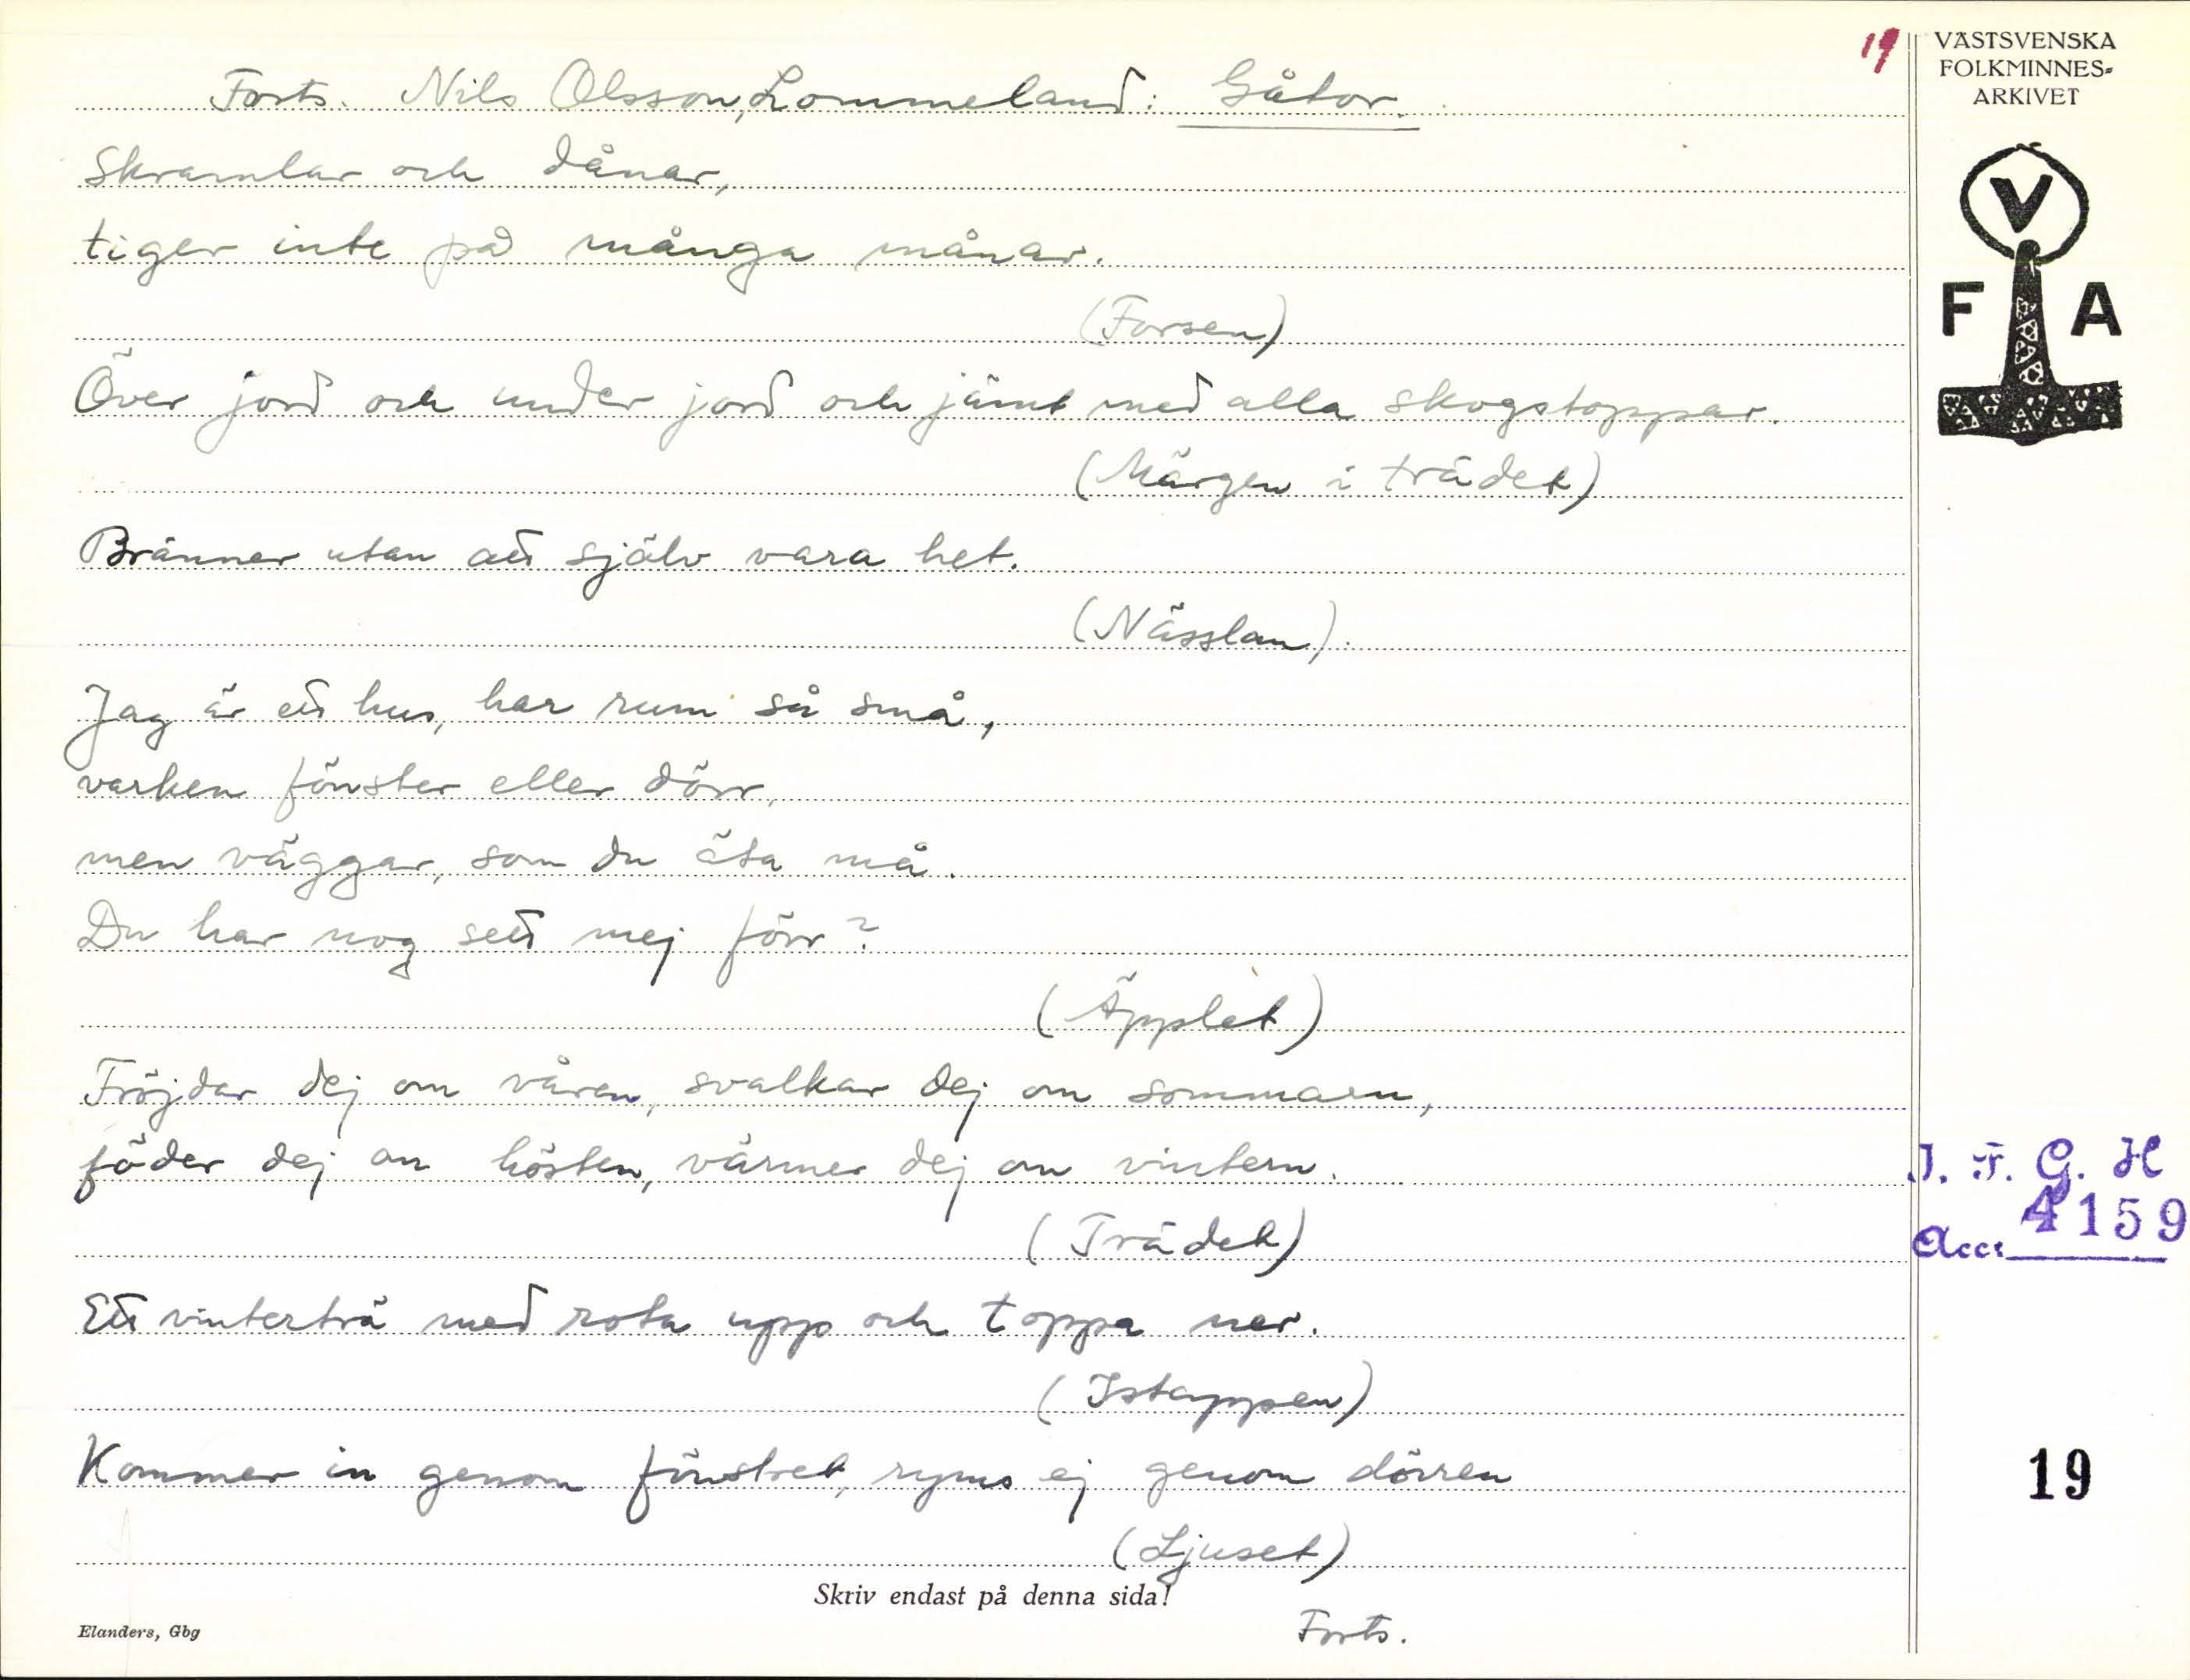 19
VÄSTSVENSKA
FOLKMINNES-
ARKIVET
V
F A
Forts. Nils Olsson, Lommeland: Gåtor.
Skramlar och dånar,
tiger inte på många månar.
(Forsen)
Över jord och under jord och jämt med alla skogstoppar.
(Märgen i trädet)
Bränner utan att själv vara het.
(Nässlan).
Jag är ett hus, har rum så små,
varken fönster eller dörr,
men väggar, som du äta må.
Du har nog sett mej förr?
(Äpplet)
Fröjdar dej om våren, svalkar dej om sommarn,
föder dej om hösten, värmer dej om vintern.
(Trädet)
I. F. G. H
Acc: 4159
Ett vinterträ med rota upp och toppa ner.
(Istappen)
Kommer in genom fönstret, ryms ej genom dörren
19
(Ljuset)
Skriv endast på denna sida!
Elanders, Gbg
Forts.